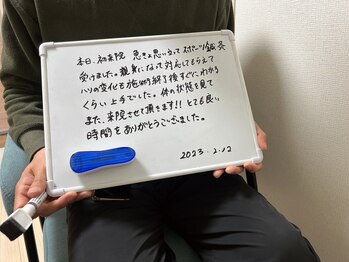 本日、初来院 思きって思い立って スポーツ鍼灸
受けました。親身になって対応してもらえて
ハリの変化も施術終了後すぐにわかる
くらい上手でした。体の状態を見て
また、来院させて頂きます!! とても良い
時間をありがとうございました。
2023.2.12